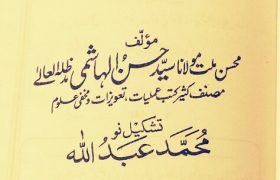 مؤلف
محسن ملت مولانا سید حسن الہاشمی مدظلہ العالی
مصنف کثیر کتب عملیات، تعویزات و مخفی علوم
تشکیل نو
محمد عبد اللہ